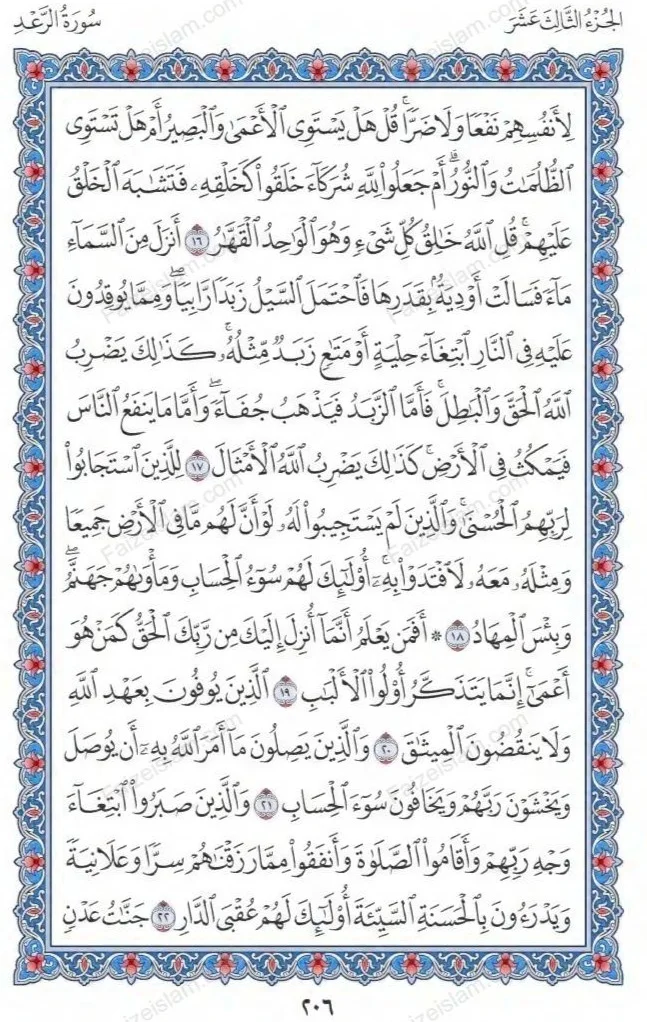 سُورَةُ الرَّعْدِ
الجُزْءُ الثَّالِثَ عَشَرَ
لِأَنفُسِهِمْ نَفْعًا وَلَا ضَرًّا ۚ قُلْ هَلْ يَسْتَوِى الْأَعْمَىٰ وَالْبَصِيرُ أَمْ هَلْ تَسْتَوِى
الظُّلُمَـٰتُ وَالنُّورُ ۗ أَمْ جَعَلُوا۟ لِلَّهِ شُرَكَآءَ خَلَقُوا۟ كَخَلْقِهِۦ فَتَشَـٰبَهَ الْخَلْقُ
عَلَيْهِمْ ۚ قُلِ اللَّهُ خَـٰلِقُ كُلِّ شَىْءٍ وَهُوَ الْوَٰحِدُ الْقَهَّـٰرُ ١٦ أَنزَلَ مِنَ السَّمَآءِ
مَآءً فَسَالَتْ أَوْدِيَةٌۢ بِقَدَرِهَا فَاحْتَمَلَ السَّيْلُ زَبَدًا رَّابِيًا ۚ وَمِمَّا يُوقِدُونَ
عَلَيْهِ فِى النَّارِ ابْتِغَآءَ حِلْيَةٍ أَوْ مَتَـٰعٍ زَبَدٌ مِّثْلُهُۥ ۚ كَذَٰلِكَ يَضْرِبُ
اللَّهُ الْحَقَّ وَالْبَـٰطِلَ ۚ فَأَمَّا الزَّبَدُ فَيَذْهَبُ جُفَآءً ۖ وَأَمَّا مَا يَنفَعُ النَّاسَ
فَيَمْكُثُ فِى الْأَرْضِ ۚ كَذَٰلِكَ يَضْرِبُ اللَّهُ الْأَمْثَالَ ١٧ لِلَّذِينَ اسْتَجَابُوا۟
لِرَبِّهِمُ الْحُسْنَىٰ ۚ وَالَّذِينَ لَمْ يَسْتَجِيبُوا۟ لَهُۥ لَوْ أَنَّ لَهُم مَّا فِى الْأَرْضِ جَمِيعًا
وَمِثْلَهُۥ مَعَهُۥ لَافْتَدَوْا۟ بِهِۦٓ ۚ أُو۟لَـٰٓئِكَ لَهُمْ سُوٓءُ الْحِسَابِ وَمَأْوَىٰهُمْ جَهَنَّمُ ۖ
وَبِئْسَ الْمِهَادُ ١٨ ۞ أَفَمَن يَعْلَمُ أَنَّمَآ أُنزِلَ إِلَيْكَ مِن رَّبِّكَ الْحَقُّ كَمَنْ هُوَ
أَعْمَىٰٓ ۚ إِنَّمَا يَتَذَكَّرُ أُو۟لُوا۟ الْأَلْبَـٰبِ ١٩ الَّذِينَ يُوفُونَ بِعَهْدِ اللَّهِ
وَلَا يَنقُضُونَ الْمِيثَـٰقَ ٢٠ وَالَّذِينَ يَصِلُونَ مَآ أَمَرَ اللَّهُ بِهِۦٓ أَن يُوصَلَ
وَيَخْشَوْنَ رَبَّهُمْ وَيَخَافُونَ سُوٓءَ الْحِسَابِ ٢١ وَالَّذِينَ صَبَرُوا۟ ابْتِغَآءَ
وَجْهِ رَبِّهِمْ وَأَقَامُوا۟ الصَّلَوٰةَ وَأَنفَقُوا۟ مِمَّا رَزَقْنَـٰهُمْ سِرًّا وَعَلَانِيَةً
وَيَدْرَءُونَ بِالْحَسَنَةِ السَّيِّئَةَ أُو۟لَـٰٓئِكَ لَهُمْ عُقْبَى الدَّارِ ٢٢ جَنَّـٰتُ عَدْنٍ
٢٠٦
Faizeislam.com